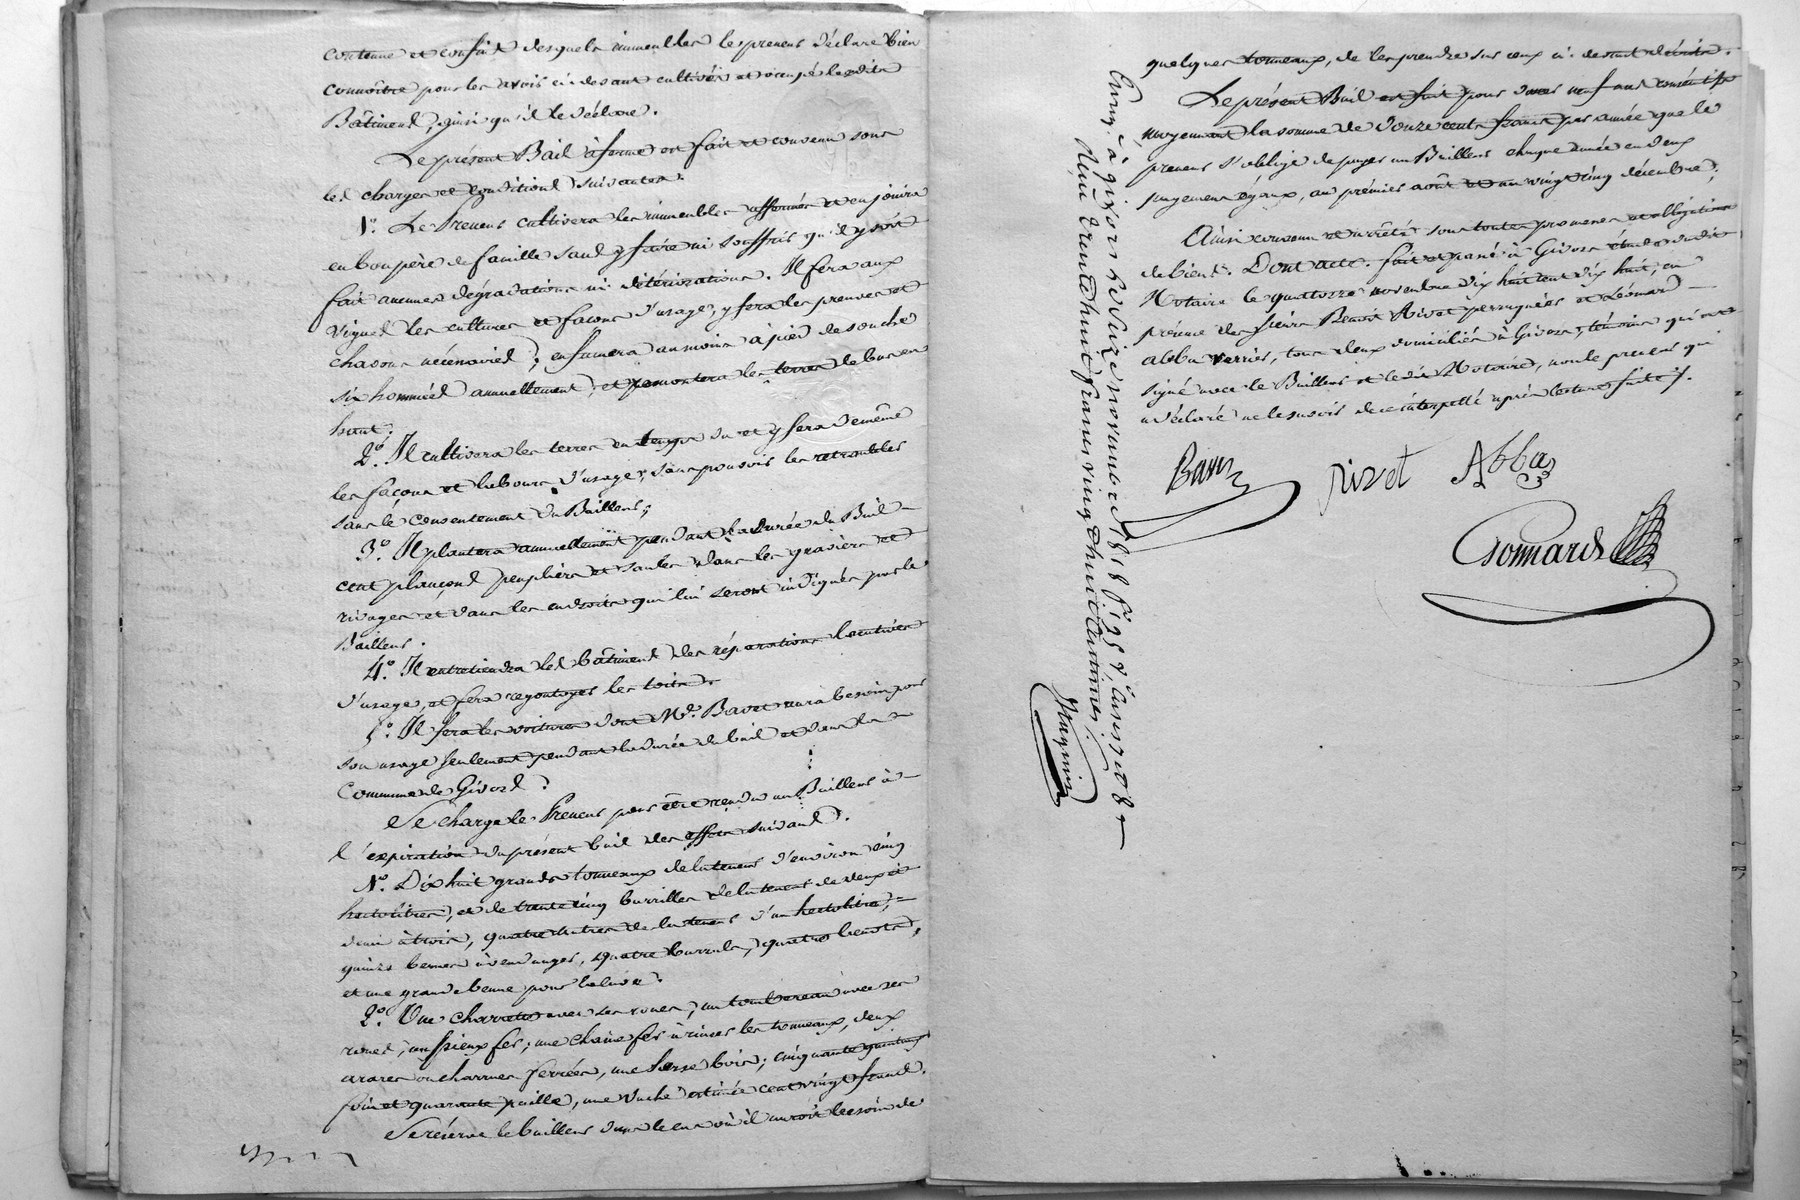 contenu et confins desquels immeubles le preneur déclare bien
connoitre pour les avoir ci devant cultivés et occupé lesdits
Bâtimens, ainsi qu'il le déclare.
Le présent Bail à ferme est fait et convenu sous
les charges et conditions suivantes.
1.º Le Preneur cultivera les immeubles affermés et en jouira
en bon père de famille sans y faire ni souffrir qu'il y soit
fait aucunes dégradations ni détériorations. Il fera aux
vignes les cultures et façons d'usage, y fera les preuves et
chasons nécessaires; en fumera au moins à pied de souche
six hommées annuellement, et remontera les terres le bas en
haut.
2.º Il cultivera les terres en temps du et y fera de même
les façons et labours d'usage, sans pouvoir les retroubler
sans le consentement du Bailleur;
3.º Il plantera annuellement pendant la durée du Bail
cent plançons peupliers et saules dans les graviers et
rivages et dans les endroits qui lui seront indiqués par le
Bailleur.
4.º Il entretiendra les bâtimens des réparations locatives
d'usage, et fera regoutoyer les toits.
5.º Il fera les voitures dont Mr. Bavet aura besoin pour
son usage seulement pendant la durée du bail et dans la
Commune de Givors.
Se charge le Preneur pour être rendu au Bailleur à
l'expiration du présent bail des effets suivans.
1.º Dix huit grands tonneaux de la teneur d'environ cinq
hectolitres, et de trente cinq barrilles de la teneur de deux et
demi à trois, quatre autres de la teneur d'un hectolitre,
quinze bennes à vendanges, quatre barrals, quatre benots,
et une grande benne pour la cuve.
2.º Une charrette avec ses roues, un tombereau avec ses
roues, un pieux fer, une chaine fer à rincer les tonneaux, deux
arares ou charrues ferrées, une herse bois; cinquante quintaux
foin et quarante paille, une vache estimée cent vingt francs.
Se réserve le bailleur dans le cas où il auroit besoin de
quelques tonneaux, de les prendre sur ceux ci devant décrits.
Le présent Bail est fait pour neuf ans consécutifs
moyennant la somme de douze cents francs par année que le
preneur s'oblige de payer au Bailleur chaque année en deux
payemens égaux, au premier août et au vingt cinq décembre;
Ainsi convenu et arrêté sous toutes promesses, et obligations
de biens. Dont acte. fait et passé à Givors étude dudit
Notaire le quatorze novembre dix huit cent dix huit, en
présence des sieurs Benoit Rivet perruquier et Léonard
abba verrier, tous deux domiciliés à Givors, témoins qui ont
signé avec le Bailleur et ledit Notaire, non le preneur qui
a déclaré ne le savoir de ce interpellé après lecture faite.
Rivet Abba
Gonnard
Enreg. à givors le seize novembre 1818 fº 25 vº
Reçu trente huit francs vingt huit centimes